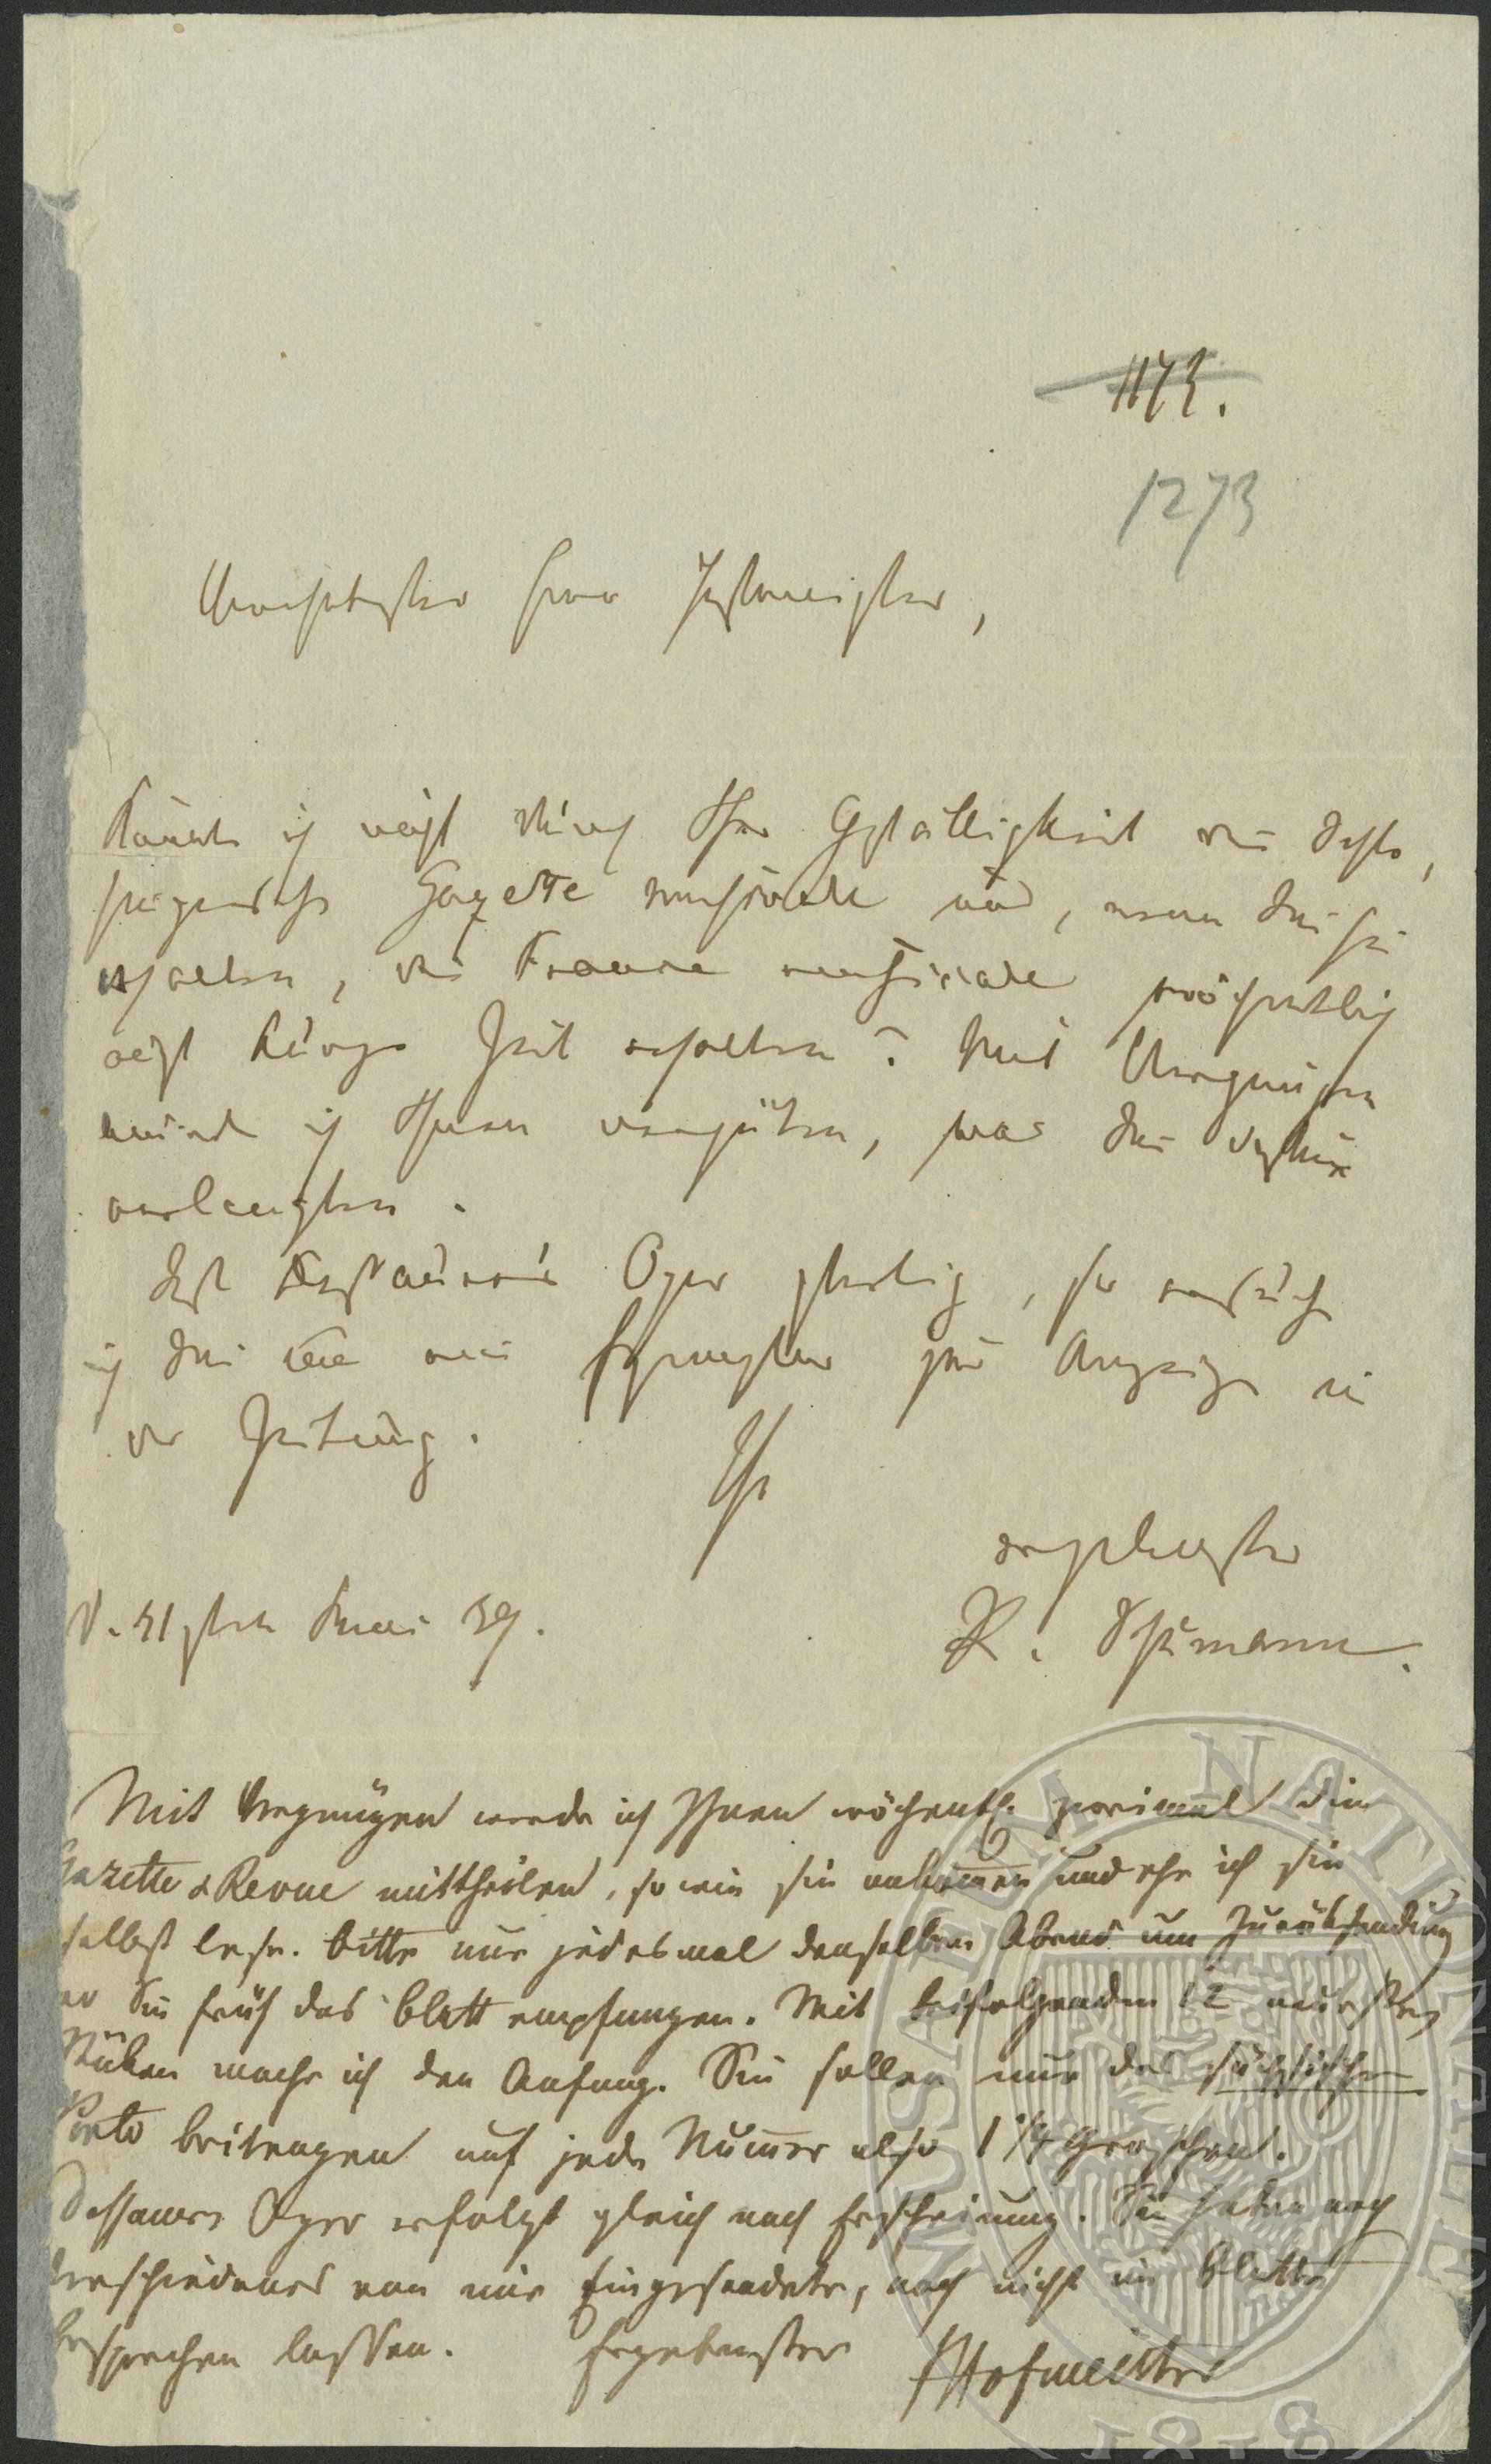 1173.
1273
Verehrtester Herr Hofmeister,
Könnte ich nicht durch Ihre Gefälligkeit die
Gazette musicale und, wenn Sie sie
erhalten, die France musicale wöchentlich
auf kurze Zeit erhalten? Mit Vergnügen
würde ich Ihnen vergüten, was Sie dafür
verlangten.
Ist Dessauers Oper fertig, so ersuche
ich Sie um ein Exemplar zur Anzeige in
der Zeitung.
Ihr
ergebenster
d. 31sten Mai 39.
R. Schumann.
Mit Vergnügen werde ich Ihnen wöchentl. zweimal die
Gazette & Revue mittheilen, so wie sie ankommen und ehe ich sie
selbst lese. bitte nur jedesmal denselben Abend um Zurücksendung
wo Sie früh das Blatt empfangen. Mit beifolgenden 12 neuesten
Stücken mache ich den Anfang. Sie sollen nur das sächsische
Porto beitragen auf jede Numer also 1 1/4 Groschen.
Dessauers Oper erfolgt gleich nach Erscheinung. Sie haben noch
Verschiedenes von mir Eingesandte, noch nicht im Blatte
besprechen lassen. Ergebenster FHofmeister
MUSAEUM NATIONALE
1818